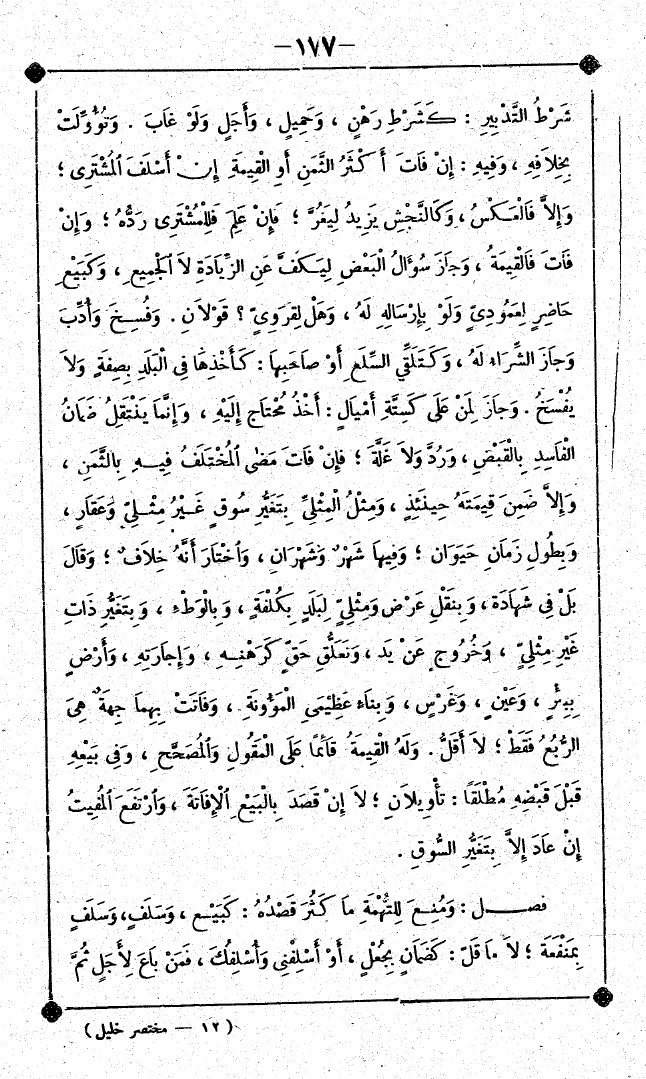 —١٧٧—
شَرْطُ التَّدْبِيرِ : كَشَرْطِ رَهْنٍ ، وَحَمِيلٍ ، وَأَجَلٍ وَلَوْ غَابَ . وَتُؤُوِّلَتْ
بِخِلَافِهِ ، وَفِيهِ : إِنْ فَاتَ أَكْثَرُ الثَّمَنِ أَوِ الْقِيمَةِ إِنْ أَسْلَفَ الْمُشْتَرِى ؛
وَإِلاَّ فَالْعَكْسُ ، وَكَالنَّجْشِ يَزِيدُ لِيَغُرَّ ؛ فَإِنْ عَلِمَ فَلِلْمُشْتَرِى رَدُّهُ ؛ وَإِنْ
فَاتَ فَالْقِيمَةُ ، وَجَازَ سُؤَالُ الْبَعْضِ لِيَكُفَّ عَنِ الزِّيَادَةِ لاَ الْجَمِيعِ ، وَكَبَيْعِ
حَاضِرٍ لِعَمُودِىٍّ وَلَوْ بِإِرْسَالِهِ لَهُ ، وَهَلْ لِقَرَوِىٍّ ؟ قَوْلاَنِ . وَفُسِخَ وَأُدِّبَ
وَجَازَ الشِّرَاءُ لَهُ ، وَكَتَلَقِّي السِّلَعِ أَوْ صَاحِبِهَا : كَأَخْذِهَا فِى الْبَلَدِ بِصِفَةٍ وَلاَ
يُفْسَخُ . وَجَازَ لِمَنْ عَلَى كَسِتَّةِ أَمْيَالٍ : أَخْذُ مُحْتَاجٍ إِلَيْهِ ، وَإِنَّمَا يَنْتَقِلُ ضَمَانُ
الْفَاسِدِ بِالْقَبْضِ ، وَرُدَّ وَلاَ غَلَّةَ ؛ فَإِنْ فَاتَ مَضَى الْمُخْتَلَفُ فِيهِ بِالثَّمَنِ ،
وَإِلاَّ ضَمِنَ قِيمَتَهُ حِينَئِذٍ ، وَمِثْلُ الْمِثْلِىِّ بِتَغَيُّرِ سُوقِ غَيْرِ مِثْلِىٍّ وَعَقَارٍ ،
وَبِطُولِ زَمَانِ حَيَوَانٍ ؛ وَفِيهَا شَهْرٌ وَشَهْرَانِ ، وَاخْتَارَ أَنَّهُ خِلَافٌ ؛ وَقَالَ
بَلْ فِى شَهَادَةٍ ، وَبِنَقْلِ عَرْضٍ وَمِثْلِىٍّ لِبَلَدٍ بِكُلْفَةٍ ، وَبِالْوَطْءِ ، وَبِتَغَيُّرِ ذَاتِ
غَيْرِ مِثْلِىٍّ ، وَخُرُوجٍ عَنْ يَدٍ ، وَتَعَلُّقِ حَقٍّ كَرَهْنِهِ ، وَإِجَارَتِهِ ، وَأَرْضٍ
بِبِئْرٍ ، وَعَيْنٍ ، وَغَرْسٍ ، وَبِنَاءٍ عَظِيمَىِ الْمَؤُونَةِ ، وَفَاتَتْ بِهِمَا جِهَةٌ هِىَ
الرُّبُعُ فَقَطْ ؛ لاَ أَقَلُّ . وَلَهُ الْقِيمَةُ قَائِمًا عَلَى الْمَقُولِ وَالْمُصَحَّحِ ، وَفِى بَيْعِهِ
قَبْلَ قَبْضِهِ مُطْلَقًا : تَأْوِيلَانِ ؛ لاَ إِنْ قَصَدَ بِالْبَيْعِ الْإِفَاتَةَ ، وَارْتَفَعَ الْمُفِيتُ
إِنْ عَادَ إِلاَّ بِتَغَيُّرِ السُّوقِ .
فصــل : وَمُنِعَ لِلتُّهْمَةِ مَا كَثُرَ قَصْدُهُ : كَبَيْعٍ ، وَسَلَفٍ ، وَسَلَفٍ
بِمَنْفَعَةٍ ؛ لاَ مَا قَلَّ : كَضَمَانٍ بِجُعْلٍ ، أَوْ أَسْلِفْنِى وَأُسْلِفُكَ ، فَمَنْ بَاعَ لِأَجَلٍ ثُمَّ
( ١٢ — مختصر خليل )